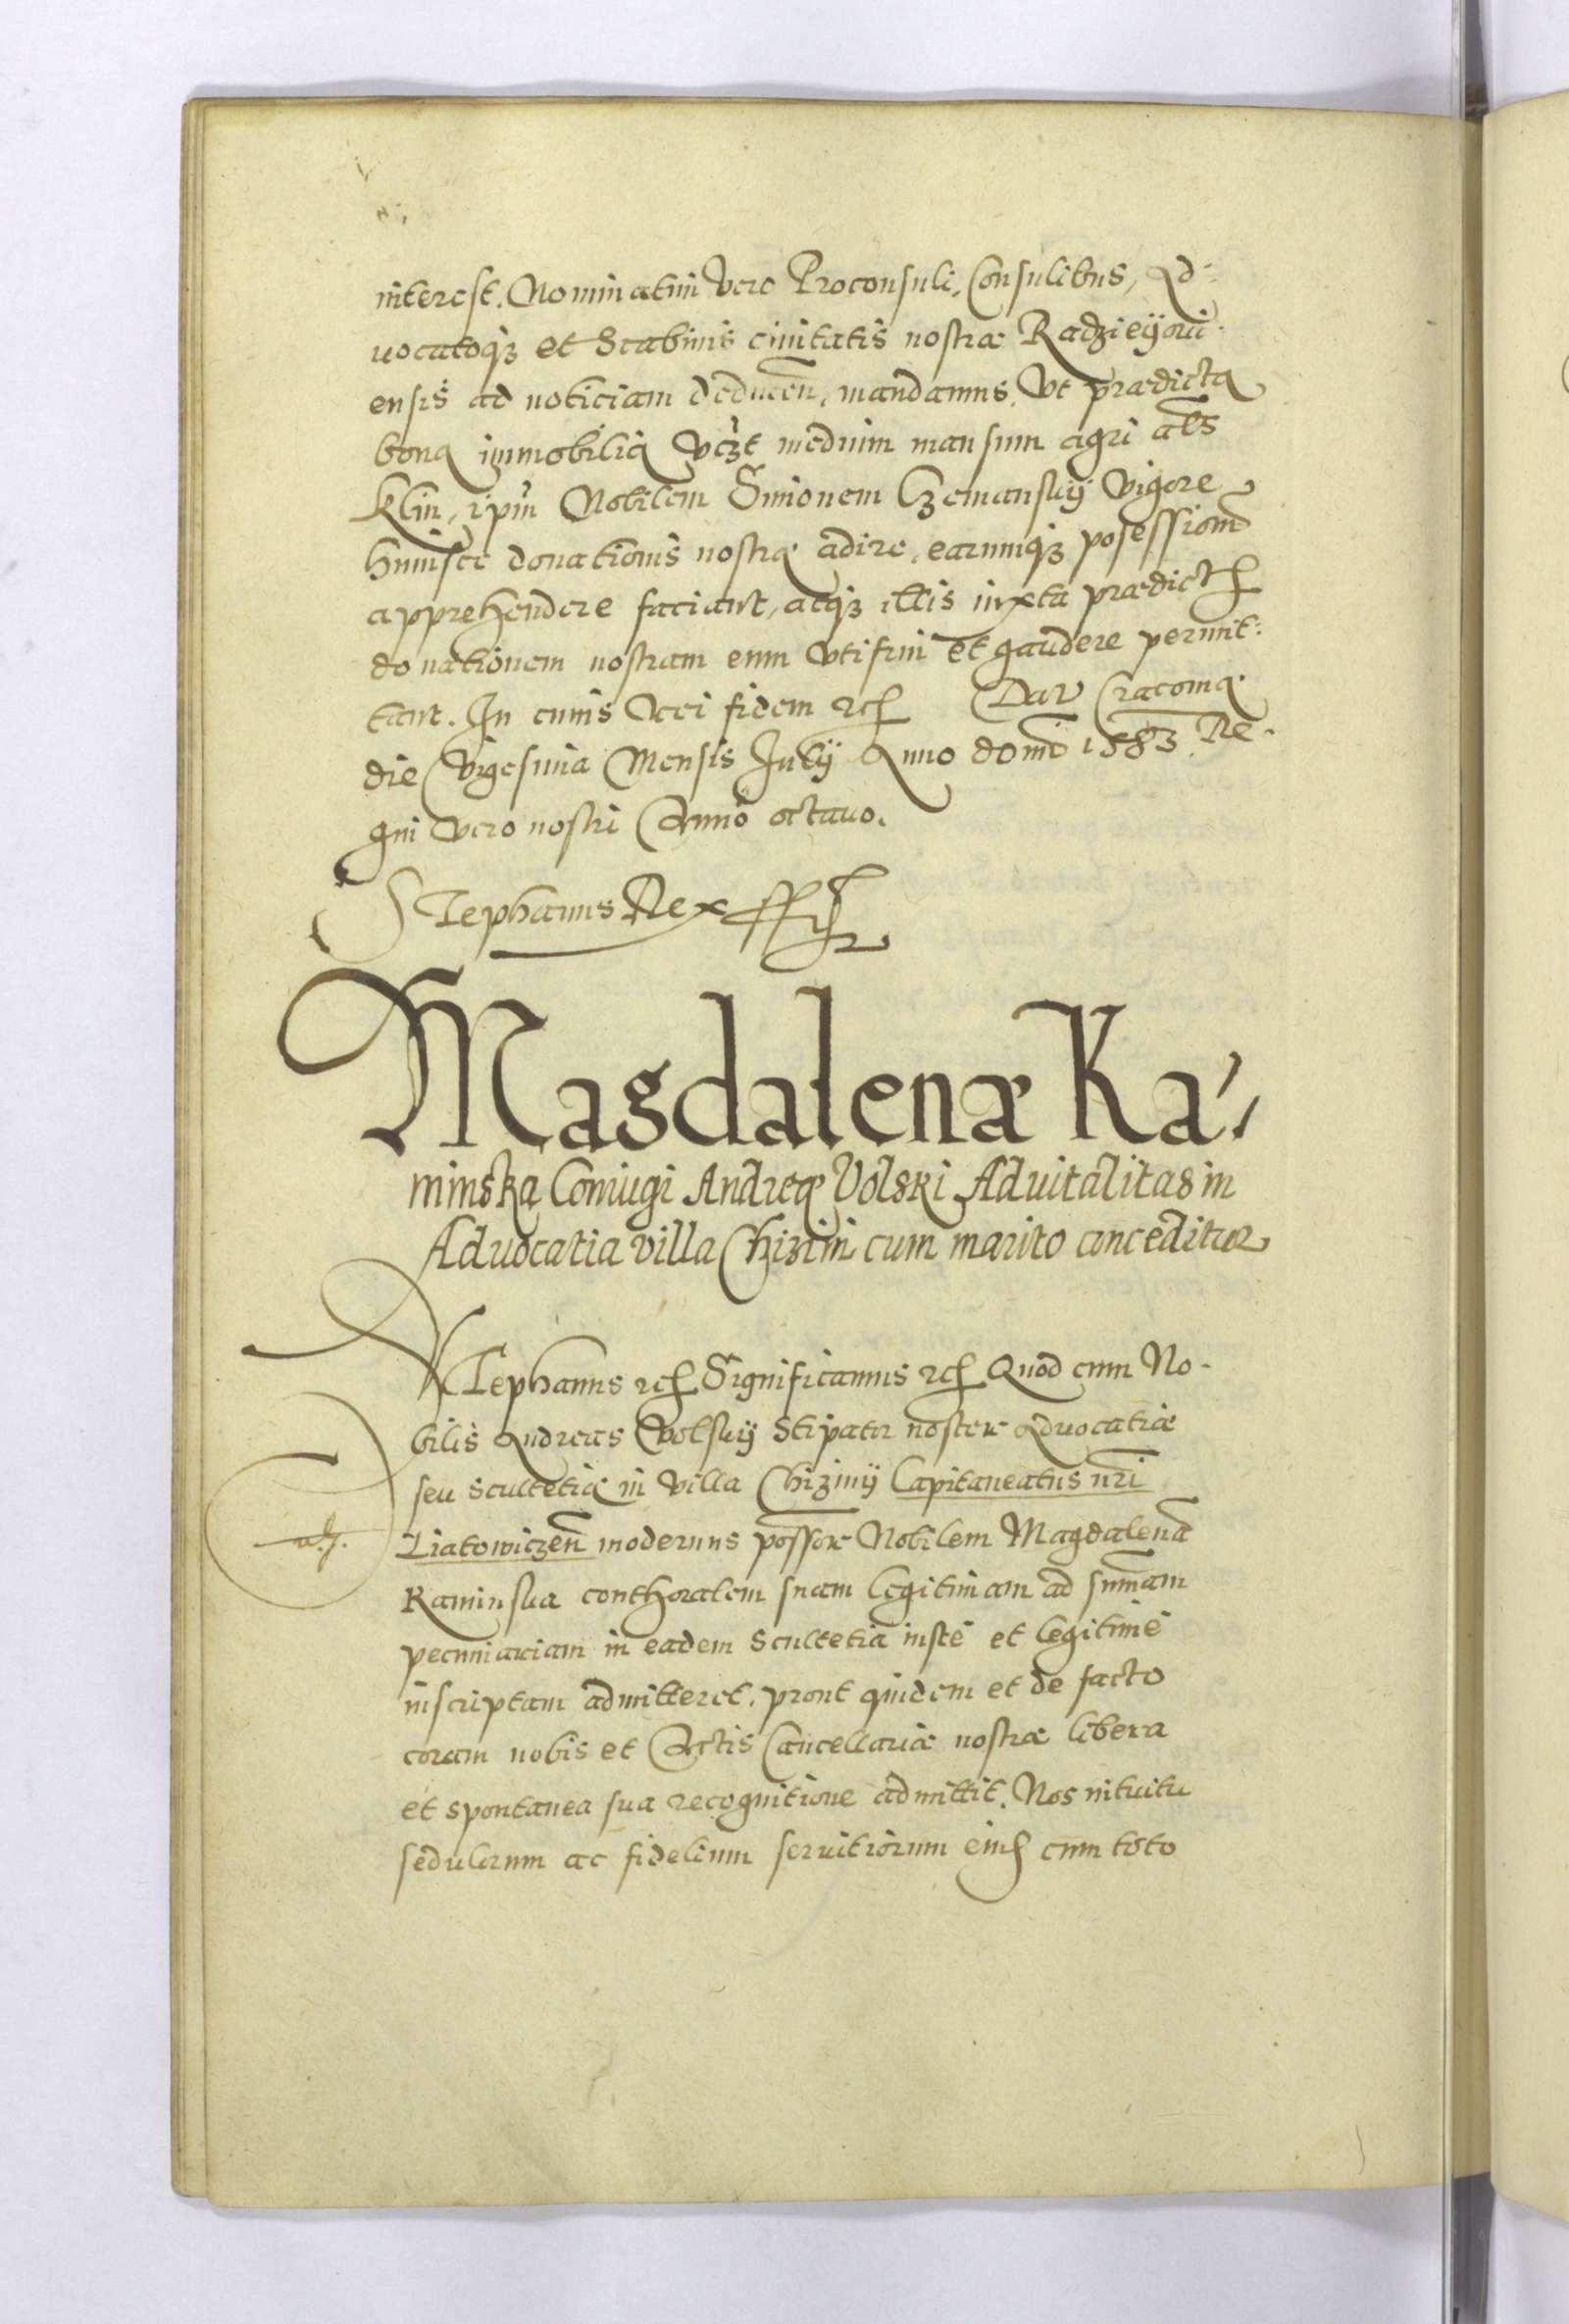 interest. Nominatim vero Proconsuli, Consulibus, Ad=
uocatoq₃ et Scabinis ciuitatis nostræ Radzieÿoui=
ensis ad noticiam deducen̄, mandamus. Vt prædicta
bona immobilia vcz̃t medium mansum agri al̃s
Klin, ip̃m Nobilem Simonem Czemanskÿ vigore
huiusce donationis nostræ adire, earumq₃ posessiom̃
apprehendere faciant, atq₃ illis iuxta prædict
donationem nostram eum vti frui et gaudere permit=
tant. In cuius rei fidem etc. Dat Cracouiæ
die Vigesima Mensis Julÿ Anno domĩ 1583. Re=
gni vero nostri Anno octauo.
Stephanus Rex
Magdalenæ Ka
minska Coniugi Andreæ Volski Aduitalitas in
Aduocatia villa Chizini cum marito conceditur
Stephanus etc. Significamus etc. Quod cum No=
bilis Andreas Volskÿ Stipator noster Aduocatiæ
seu scultetiæ in villa Chizinÿ Capitaneatus nr̃i
Liatowiczen̄ modernus possor Nobilem Magdalenã
Kaminska conthoralem suam legitimam ad sum̃am
pecuniariam in eadem Scultetia iuste et legitime
inscriptam admitteret, prout quidem et de facto
coram nobis et Actis Cancellariæ nostræ libera
et spontanea sua recognitione admittit. Nos intuitu
sedulorum ac fidelium seruitiorum eius cum toto